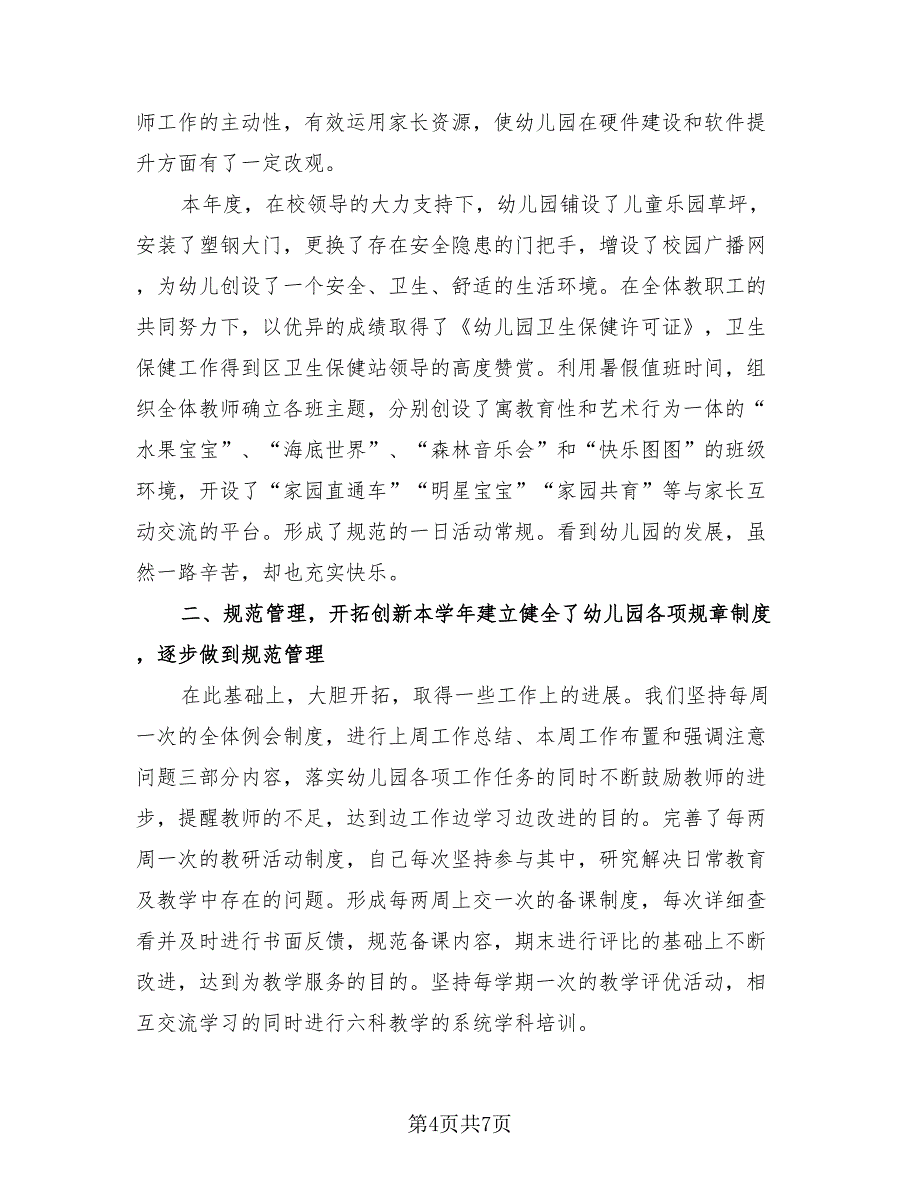 师工作的主动性，有效运用家长资源，使幼儿园在硬件建设和软件提
升方面有了一定改观。
本年度，在校领导的大力支持下，幼儿园铺设了儿童乐园草坪，
安装了塑钢大门，更换了存在安全隐患的门把手，增设了校园广播网
，为幼儿创设了一个安全、卫生、舒适的生活环境。在全体教职工的
共同努力下，以优异的成绩取得了《幼儿园卫生保健许可证》，卫生
保健工作得到区卫生保健站领导的高度赞赏。利用暑假值班时间，组
织全体教师确立各班主题，分别创设了寓教育性和艺术行为一体的“
水果宝宝”、“海底世界”、“森林音乐会”和“快乐图图”的班级
环境，开设了“家园直通车”“明星宝宝”“家园共育”等与家长互
动交流的平台。形成了规范的一日活动常规。看到幼儿园的发展，虽
然一路辛苦，却也充实快乐。
二、规范管理，开拓创新本学年建立健全了幼儿园各项规章制度
，逐步做到规范管理
在此基础上，大胆开拓，取得一些工作上的进展。我们坚持每周
一次的全体例会制度，进行上周工作总结、本周工作布置和强调注意
问题三部分内容，落实幼儿园各项工作任务的同时不断鼓励教师的进
步，提醒教师的不足，达到边工作边学习边改进的目的。完善了每两
周一次的教研活动制度，自己每次坚持参与其中，研究解决日常教育
及教学中存在的问题。形成每两周上交一次的备课制度，每次详细查
看并及时进行书面反馈，规范备课内容，期末进行评比的基础上不断
改进，达到为教学服务的目的。坚持每学期一次的教学评优活动，相
互交流学习的同时进行六科教学的系统学科培训。
第4页共7页